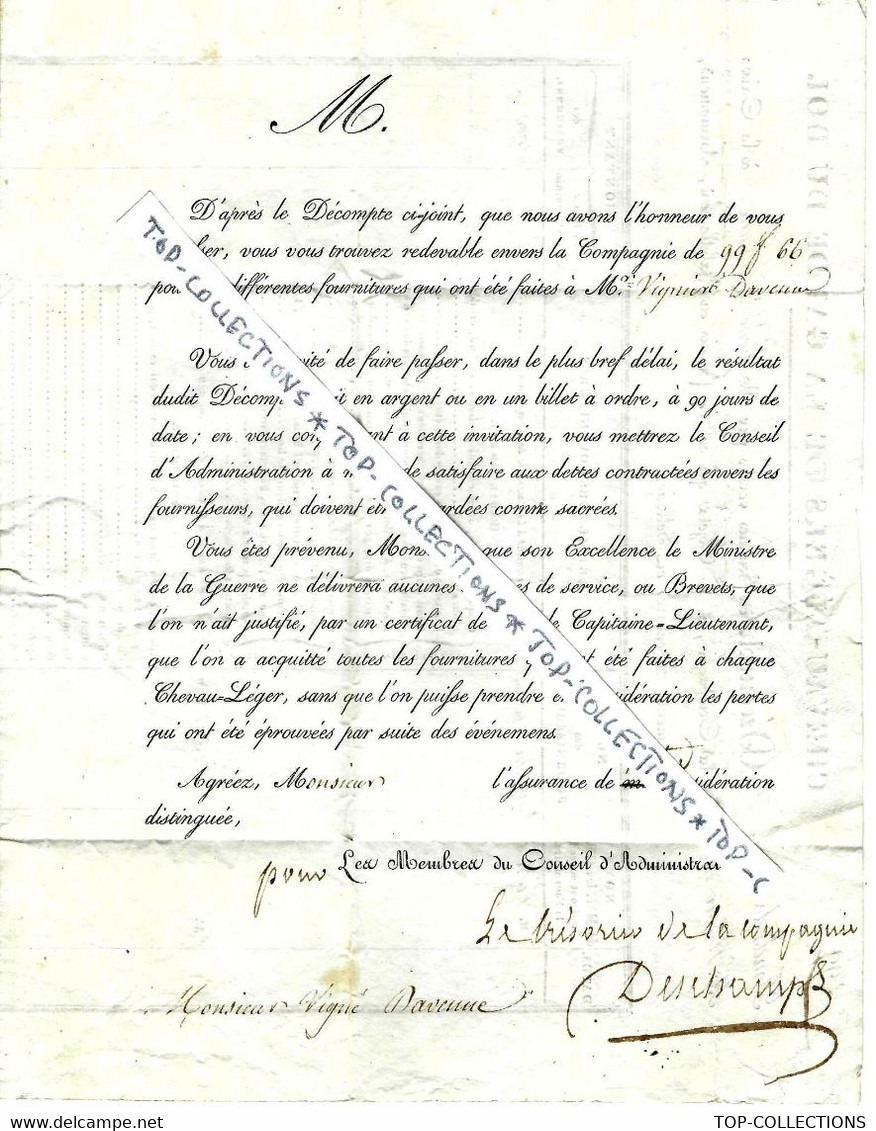 M.
D'après le Décompte ci-joint, que nous avons l'honneur de vous
ser, vous vous trouvez redevable envers la Compagnie de 99 f 66
pou différentes fournitures qui ont été faites à M. Davenne
Vous ité de faire passer, dans le plus bref délai, le résultat
dudit Décomp it en argent ou en un billet à ordre, à 90 jours de
date; en vous con ant à cette invitation, vous mettrez le Conseil
d'Administration à de satisfaire aux dettes contractées envers les
fournisseurs, qui doivent êt ardées comme sacrées.
Vous êtes prévenu, Mons que son Excellence le Ministre
de la Guerre ne délivrera aucunes es de service, ou Brevets, que
l'on n'ait justifié, par un certificat de Capitaine-Lieutenant,
que l'on a acquitté toutes les fournitures t été faites à chaque
Chevau-Léger, sans que l'on puisse prendre e idération les pertes
qui ont été éprouvées par suite des événemens.
Agréez, Monsieur l'assurance de sidération
distinguée,
pour Les Membres du Conseil d'Administra
Le trésorier de la compagnie
Deschamps
Monsieur Vigné Davenne
TOP-COLLECTIONS * TOP-COLLECTIONS * TOP-COLLECTIONS * TOP-C
www.delcampe.net TOP-COLLECTIONS